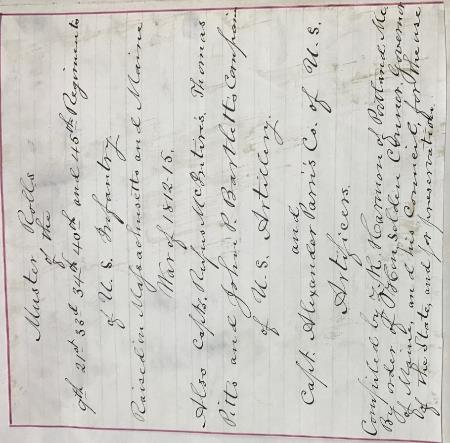 Muster Rolls
of the
9th 21st 33d 34th 40th and 45th Regiments
of U.S. Infantry
Raised in Massachusetts and Maine
War of 1812.15.
Also Capts. Rufus McIntire's, Thomas
Pitts and John P. Bartletts Compain
of U.S. Artillery.
and
Capt. Alexander Parris Co. of U.S.
Artificers.
Compiled by Z. K. Harmon of Portland, Me.
By order of Hon. Selden Connor, Governor
of Maine, and his Council, for the use
of the State, and for preservation.